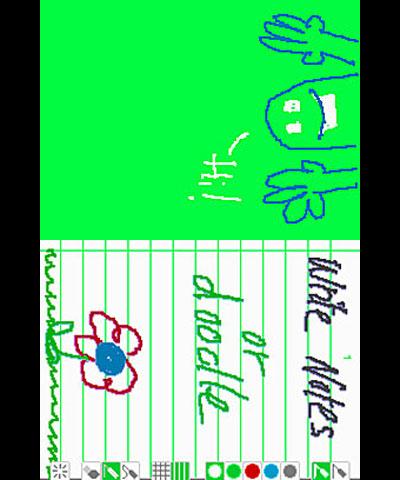 Hi!
Write Notes
or
doodle